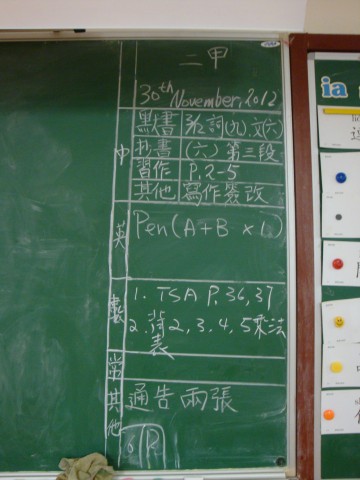 二甲
30th November, 2012
中
默書 彩詞(九), 文(六)
抄書 (六) 第三段
習作 P. 2-5
其他 寫作簽改
英
Pen (A+B ×1)
數
1. TSA P. 36, 37
2. 背 2, 3, 4, 5 乘法表
常
其他
通告兩張
ia